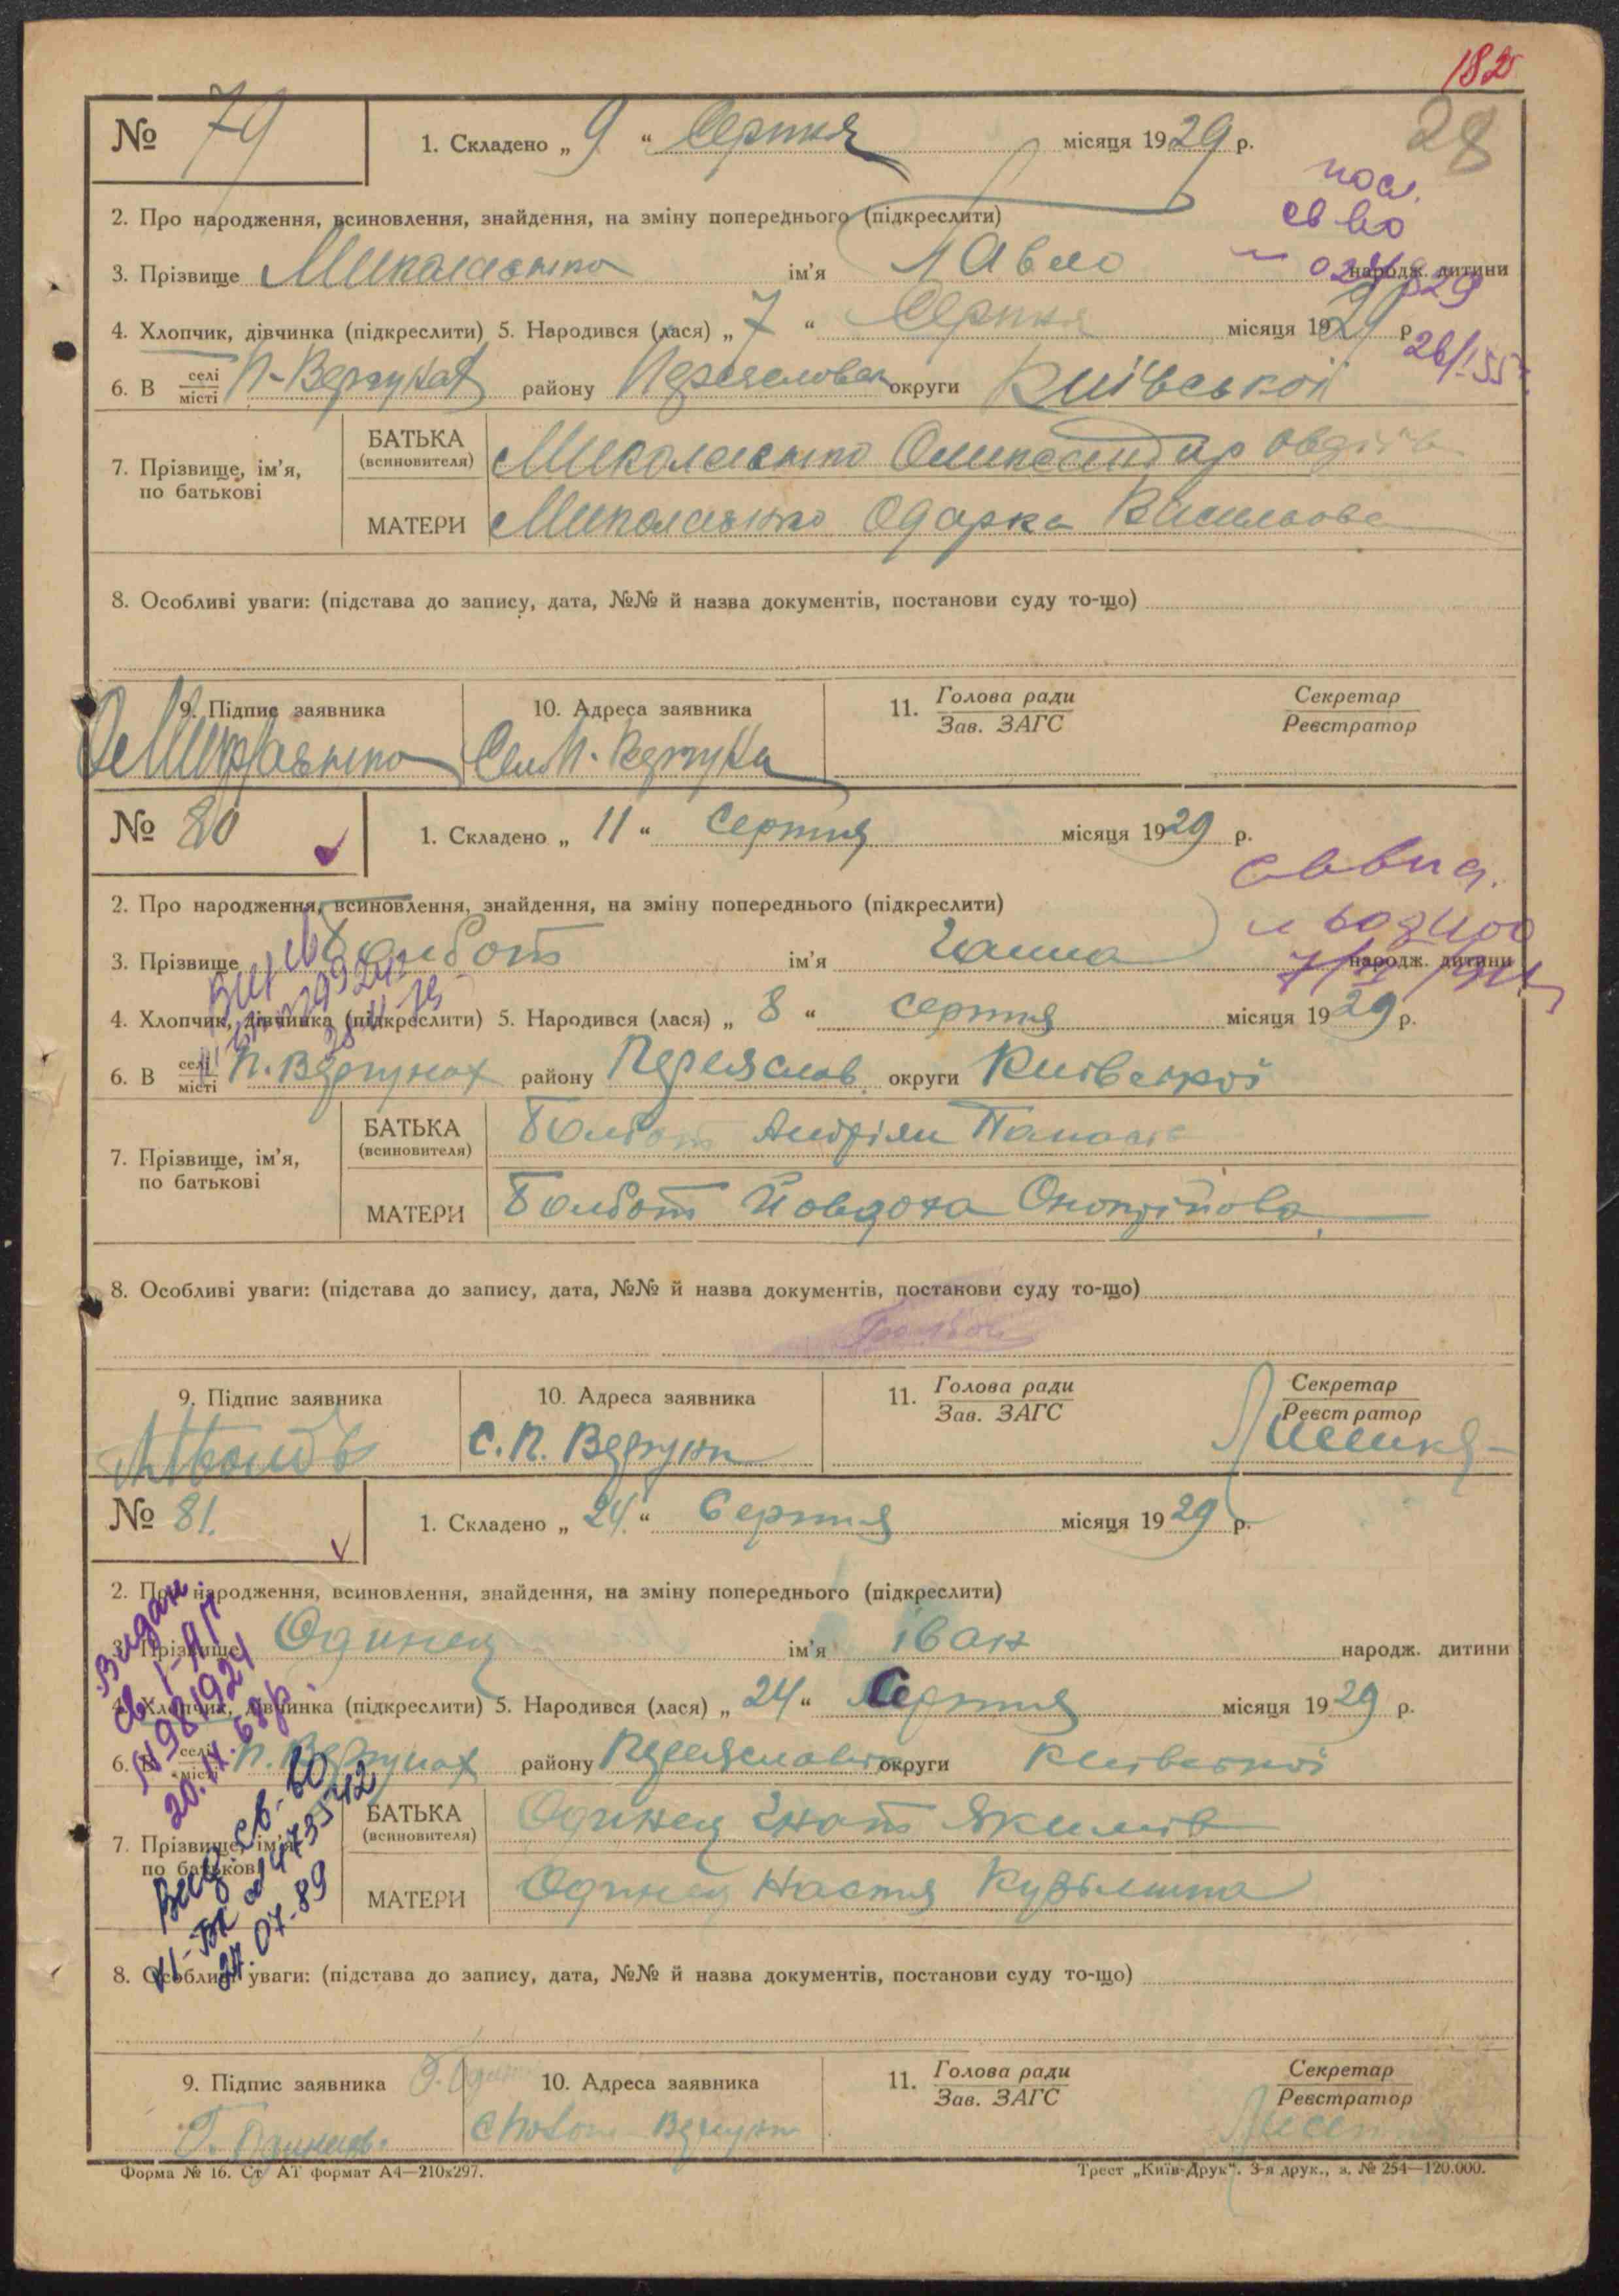 182
28
№ 79 1. Складено „ 9 “ Серпня місяця 1929 р.
2. Про народження, всиновлення, знайдення, на зміну попереднього (підкреслити)
3. Прізвище Миколаенко ім'я Павло народж. дитини
4. Хлопчик, дівчинка (підкреслити) 5. Народився (лася) „ 7 “ Серпня місяця 1929 р.
6. В селі/місті П-Вергунах району Переяславськ округи Київської
7. Прізвище, ім'я, по батькові
БАТЬКА (всиновителя) Миколаенко Олександр Овдіів
МАТЕРИ Миколаенко Одарка Васильова
8. Особливі уваги: (підстава до запису, дата, №№ й назва документів, постанови суду то-що)
9. Підпис заявника 10. Адреса заявника 11. Голова ради/Зав. ЗАГС Секретар/Реєстратор
Село П. Вергуни
№ 80 1. Складено „ 11 “ Серпня місяця 1929 р.
2. Про народження, всиновлення, знайдення, на зміну попереднього (підкреслити)
3. Прізвище Болбот ім'я Ганна народж. дитини
4. Хлопчик, дівчинка (підкреслити) 5. Народився (лася) „ 8 “ Серпня місяця 1929 р.
6. В селі/місті П. Вергунах району Переяслав. округи Київської
7. Прізвище, ім'я, по батькові
БАТЬКА (всиновителя) Болбот Андріян Панасів
МАТЕРИ Болбот Йовдоха Онопрійова
8. Особливі уваги: (підстава до запису, дата, №№ й назва документів, постанови суду то-що)
9. Підпис заявника 10. Адреса заявника 11. Голова ради/Зав. ЗАГС Секретар/Реєстратор
С. П. Вергуни
№ 81. 1. Складено „ 24 “ Серпня місяця 1929 р.
2. Про народження, всиновлення, знайдення, на зміну попереднього (підкреслити)
3. Прізвище Одинец ім'я Іван народж. дитини
4. Хлопчик, дівчинка (підкреслити) 5. Народився (лася) „ 24 “ Серпня місяця 1929 р.
6. В селі/місті П. Вергунах району округи Київської
7. Прізвище, ім'я, по батькові
БАТЬКА (всиновителя) Одинец Гнат Якимів
МАТЕРИ Одинец Настя Кузьмина
Видан
20.IX.68р.
24.07-89
8. Особливі уваги: (підстава до запису, дата, №№ й назва документів, постанови суду то-що)
9. Підпис заявника 10. Адреса заявника 11. Голова ради/Зав. ЗАГС Секретар/Реєстратор
Форма № 16. Ст. АТ формат А4—210х297. Трест „Київ-Друк“. 3-я друк., з. № 254—120.000.